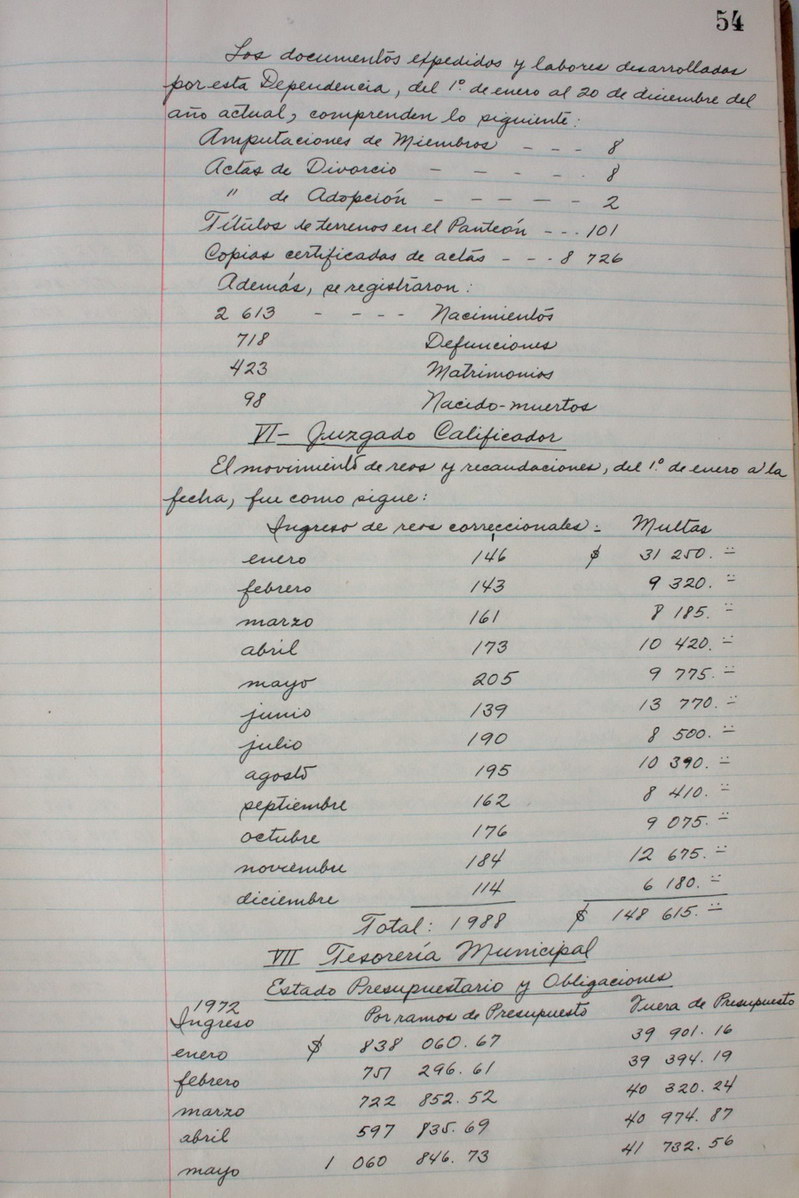 54
Los documentos expedidos y labores desarrollados
por esta Dependencia, del 1º de enero al 20 de diciembre del
año actual, comprenden lo siguiente:
Amputaciones de Miembros - - - 8
Actas de Divorcio - - - - - 8
" de Adopción - - - - - 2
Títulos de terrenos en el Panteón - - - 101
Copias certificadas de actas - - - 8 726
Además, se registraron:
2 613 - - - - Nacimientos
718 Defunciones
423 Matrimonios
98 Nacido-muertos
VI- Juzgado Calificador
El movimiento de reos y recaudaciones, del 1º de enero a la
fecha, fue como sigue:
Ingreso de reos correccionales: Multas
enero 146 $ 31 250.=
febrero 143 9 320.=
marzo 161 8 185.=
abril 173 10 420.=
mayo 205 9 775.=
junio 139 13 770.=
julio 190 8 500.=
agosto 195 10 390.=
septiembre 162 8 410.=
octubre 176 9 075.=
noviembre 184 12 675.=
diciembre 114 6 180.=
Total: 1988 $ 148 615.=
VII Tesorería Municipal
Estado Presupuestario y Obligaciones
1972
Ingreso Por ramos de Presupuesto Fuera de Presupuesto
enero $ 838 060.67 39 901.16
febrero 751 296.61 39 394.19
marzo 722 852.52 40 320.24
abril 597 835.69 40 974.87
mayo 1 060 846.73 41 732.56